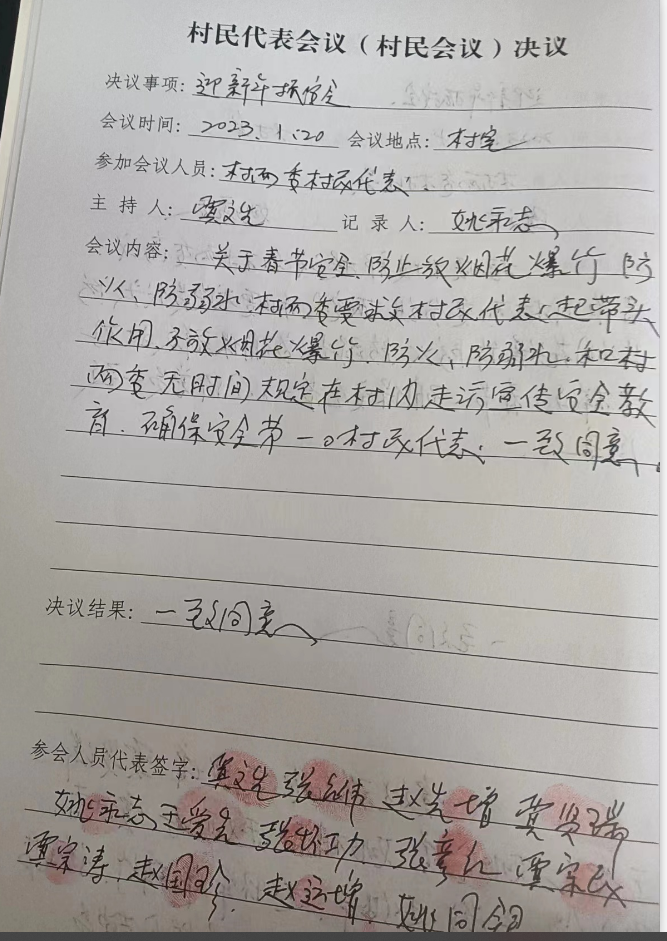 村民代表会议（村民会议）决议
决议事项：迎新年抓安全
会议时间：2023.1.20 会议地点：村室
参加会议人员：村两委村民代表
主持人：贾文先 记录人：姚永志
会议内容：关于春节安全、防止放烟花爆竹防
火、防溺水，村两委要求村民代表起带头
作用，不放烟花爆竹、防火、防溺水，和村
两委无时间规定在村内走访宣传安全教
育，确保安全第一。村民代表：一致同意
决议结果：一致同意
参会人员代表签字：贾文先 张 伟 赵先增 贾贤瑞
姚永志 王爱先 张 功 张彦红 贾宗民
贾宗涛 赵国珍 赵运增 姚同